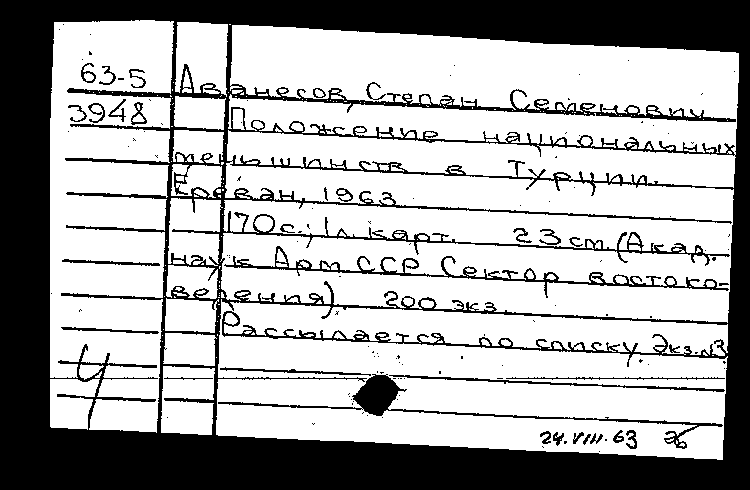 63-5 Аванесов, Степан Семенович
3948 Положение национальных
меньшинств в Турции.
Ереван, 1963
170 с.; 1 л. карт. 23 см. (Акад.
наук Арм ССР. Сектор востоко-
ведения). 200 экз.
Рассылается по списку. Экз. №3
Ч
24.VIII.63